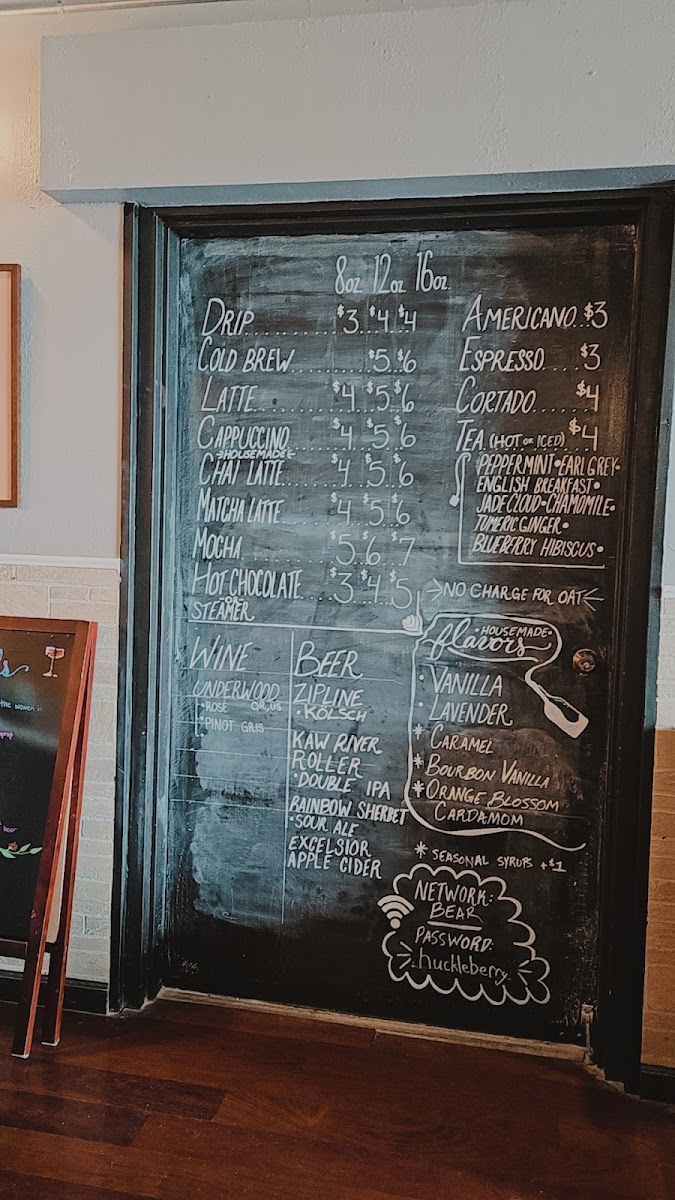 8oz 12oz 16oz.
DRIP........$3..$4..$4
COLD BREW........$5..$6
LATTE........$4..$5..$6
CAPPUCCINO....$4..$5..$6
HOUSEMADE
CHAI LATTE....$4..$5..$6
MATCHA LATTE....$4..$5..$6
MOCHA........$5..$6..$7
HOT CHOCOLATE....$3..$4..$5
OR
STEAMER
AMERICANO...$3
ESPRESSO....$3
CORTADO......$4
TEA (HOT OR ICED) $4
PEPPERMINT•EARL GREY•
ENGLISH BREAKFAST•
JADE CLOUD•CHAMOMILE•
TUMERIC GINGER•
BLUEBERRY HIBISCUS•
NO CHARGE FOR OAT
WINE
UNDERWOOD
•ROSE
•PINOT GRIS
BEER
ZIPLINE
•KÖLSCH
KAW RIVER
ROLLER
•DOUBLE IPA
RAINBOW SHERBET
•SOUR ALE
EXCELSIOR
APPLE CIDER
•HOUSEMADE•
flavors
•VANILLA
•LAVENDER
*CARAMEL
*BOURBON VANILLA
*ORANGE BLOSSOM
CARDAMOM
* SEASONAL SYRUPS +$1
NETWORK:
BEAR
PASSWORD:
huckleberry